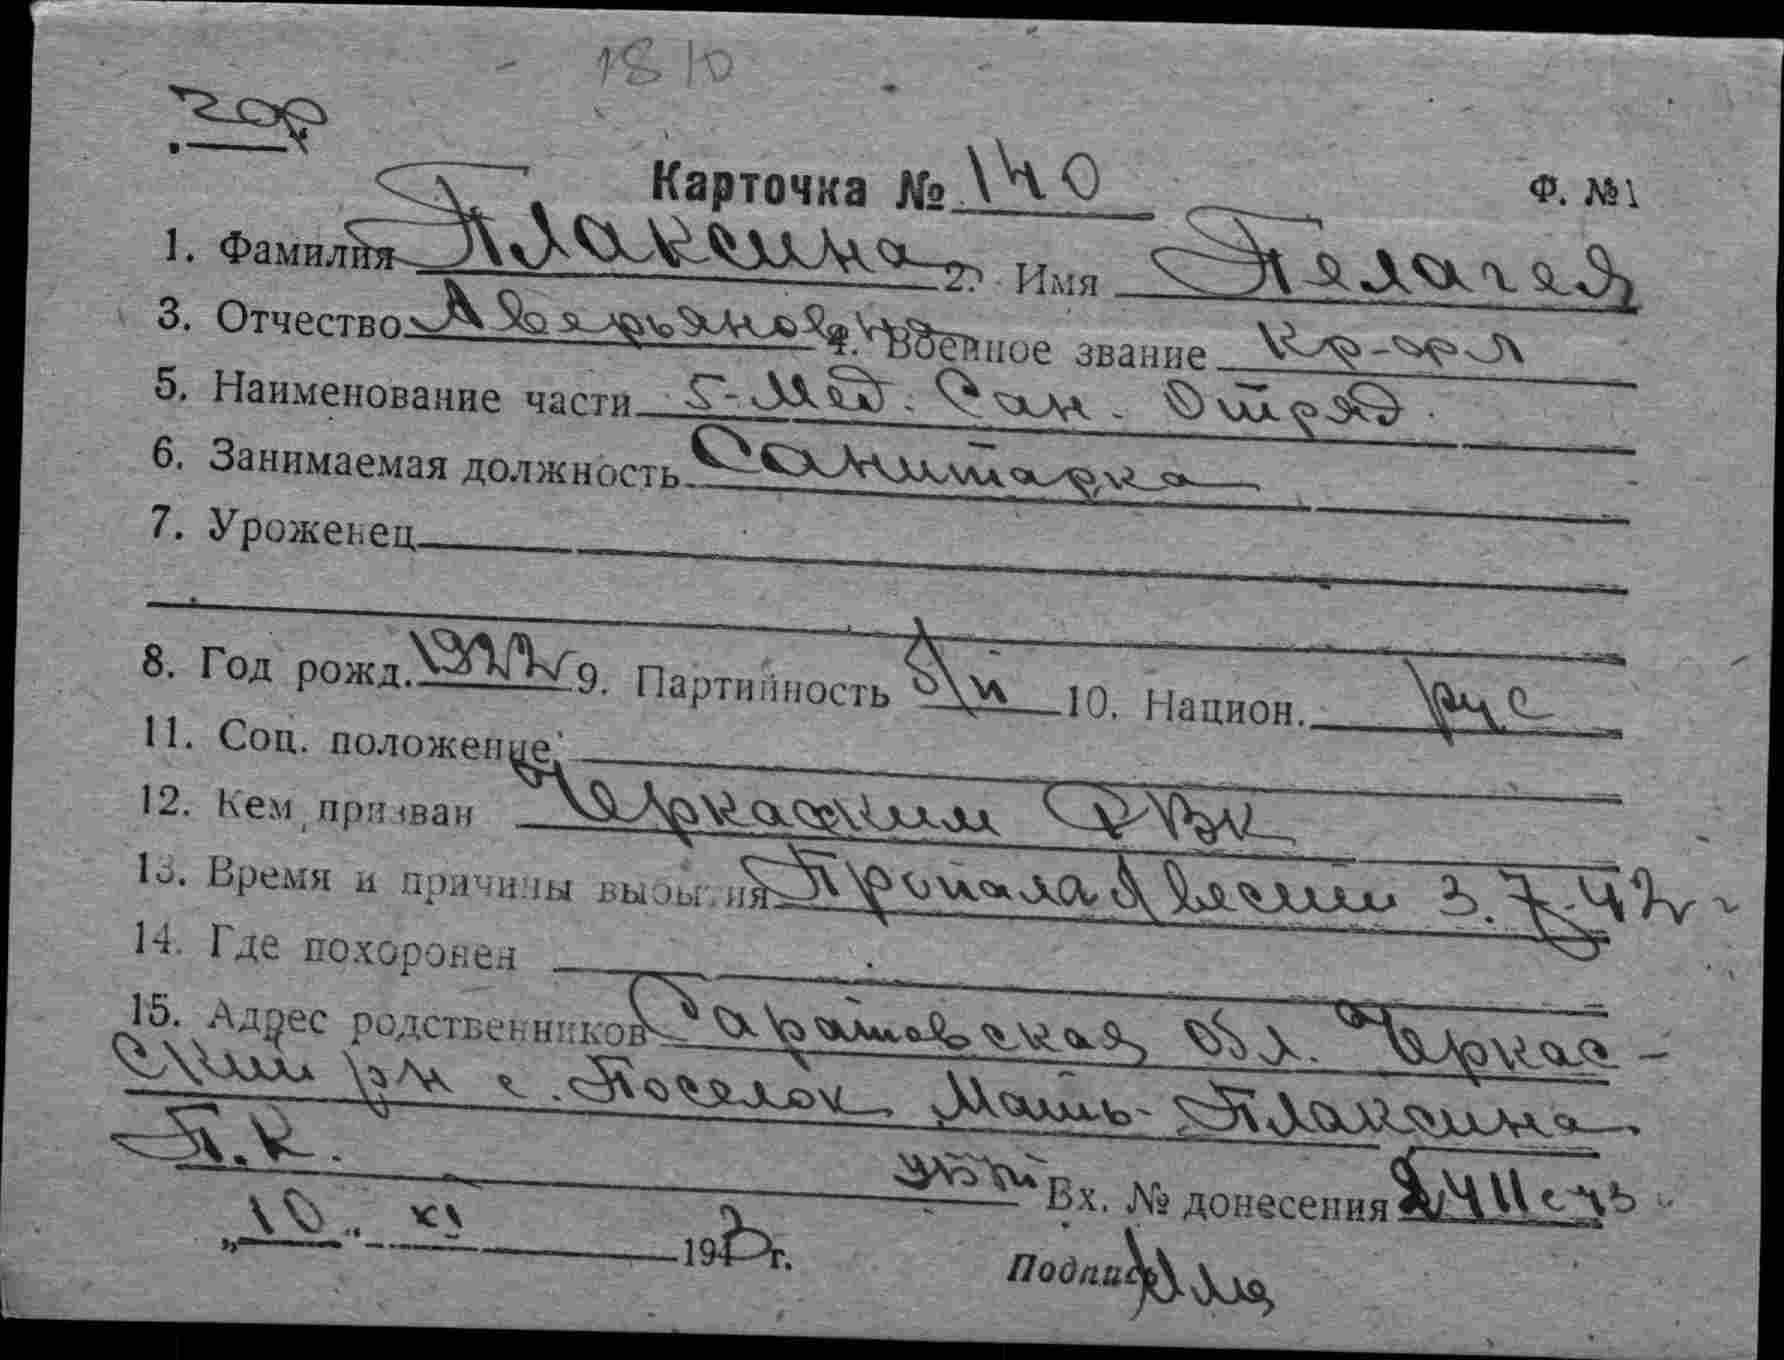 1810
Карточка № 140 Ф. №1
1. Фамилия Плаксина 2. Имя Пелагея
3. Отчество Аверьяновна 4. Военное звание кр-ар
5. Наименование части 5-Мед. Сан. Отряд.
6. Занимаемая должность Санитарка
7. Уроженец
8. Год рожд. 1922 9. Партийность б/п 10. Национ. рус
11. Соц. положение
12. Кем призван Черкасским РВК
13. Время и причины выбытия Пропала б/вести 3.7.42 г
14. Где похоронен
15. Адрес родственников Саратовская обл. Черкас-
ский р-н с. Поселок Мать-Плаксина
П.К.
Вх. № донесения
„10“ XI 1943 г.
Подпись